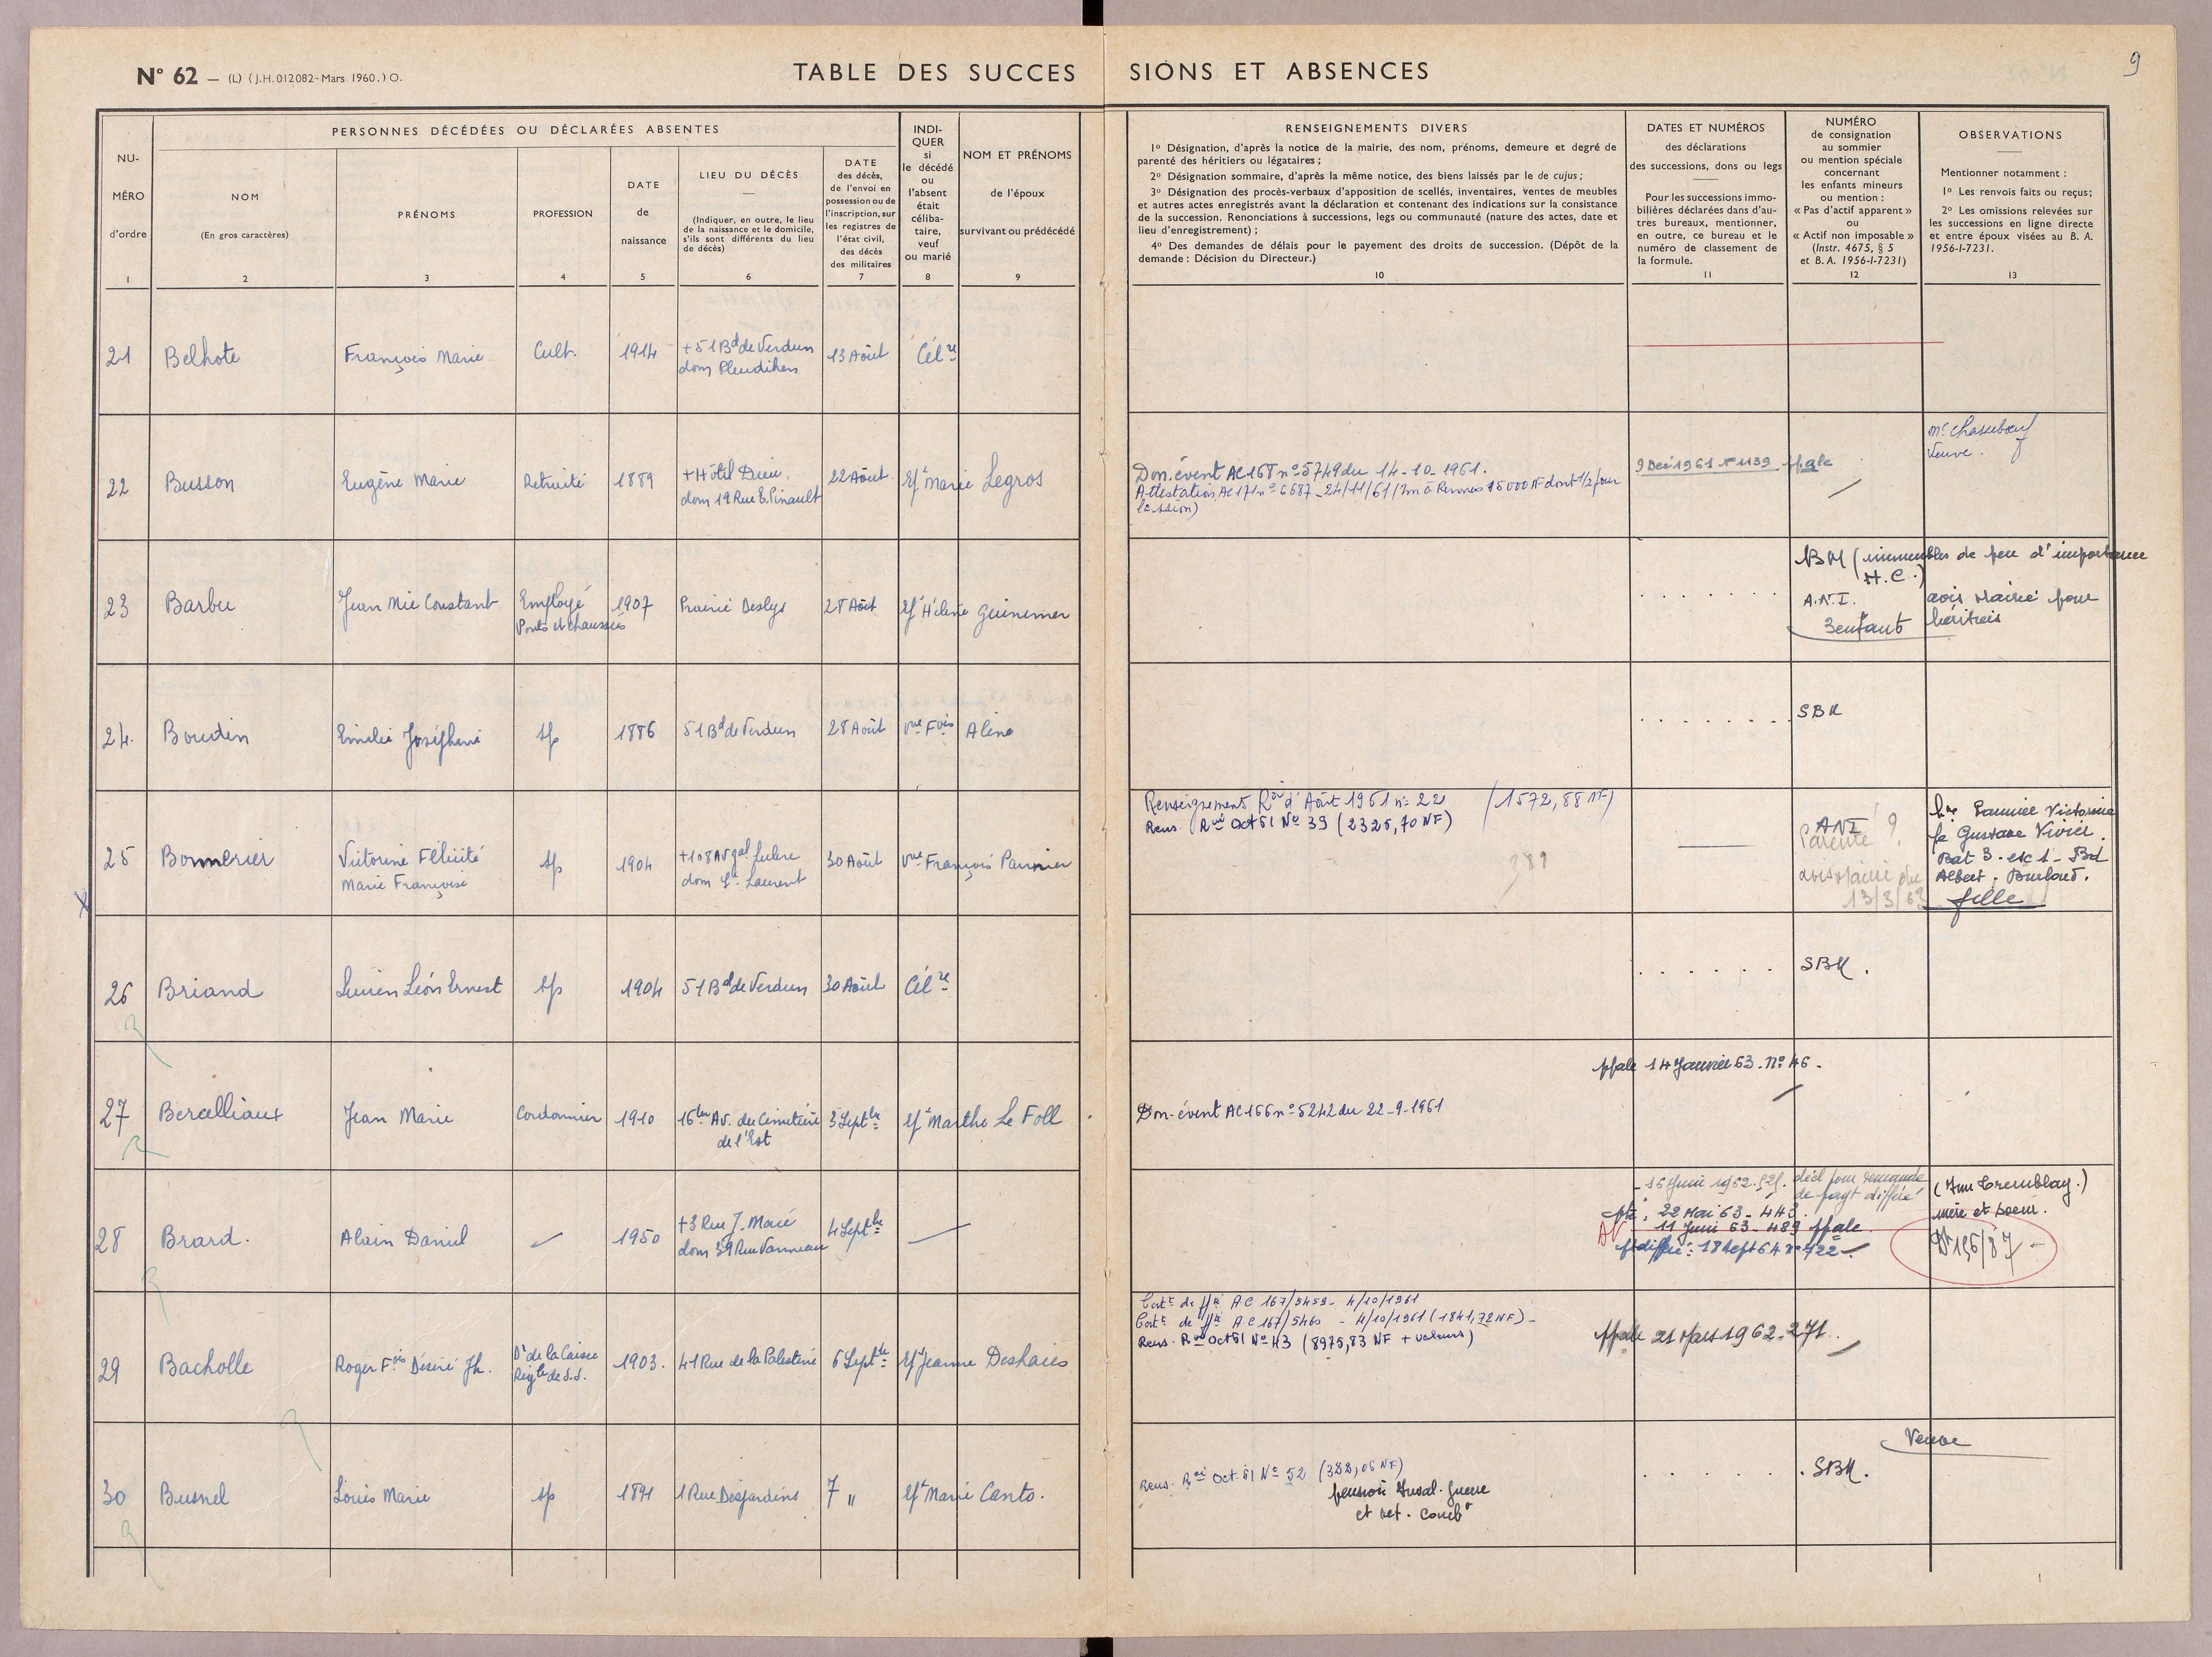 N° 62 — (L) (J.H.012082-Mars 1960.) O.
TABLE DES SUCCESSIONS ET ABSENCES
9
PERSONNES DÉCÉDÉES OU DÉCLARÉES ABSENTES
NU-
MÉRO
d'ordre
1
NOM
(En gros caractères)
2
PRÉNOMS
3
PROFESSION
4
DATE
de
naissance
5
LIEU DU DÉCÈS
(Indiquer, en outre, le lieu
de la naissance et le domicile,
s'ils sont différents du lieu
de décès)
6
DATE
des décès,
de l'envoi en
possession ou de
l'inscription, sur
les registres de
l'état civil,
des décès
des militaires
7
INDI-
QUER
si
le décédé
ou
l'absent
était
céliba-
taire,
veuf
ou marié
8
NOM ET PRÉNOMS
de l'époux
survivant ou prédécédé
9
RENSEIGNEMENTS DIVERS
1° Désignation, d'après la notice de la mairie, des nom, prénoms, demeure et degré de
parenté des héritiers ou légataires ;
2° Désignation sommaire, d'après la même notice, des biens laissés par le de cujus ;
3° Désignation des procès-verbaux d'apposition de scellés, inventaires, ventes de meubles
et autres actes enregistrés avant la déclaration et contenant des indications sur la consistance
de la succession. Renonciations à successions, legs ou communauté (nature des actes, date et
lieu d'enregistrement) ;
4° Des demandes de délais pour le payement des droits de succession. (Dépôt de la
demande : Décision du Directeur.)
10
DATES ET NUMÉROS
des déclarations
des successions, dons ou legs
Pour les successions immo-
bilières déclarées dans d'au-
tres bureaux, mentionner,
en outre, ce bureau et le
numéro de classement de
la formule.
11
NUMÉRO
de consignation
au sommier
ou mention spéciale
concernant
les enfants mineurs
ou mention :
« Pas d'actif apparent »
ou
« Actif non imposable »
(Instr. 4675, § 5
et B. A. 1956-I-7231)
12
OBSERVATIONS
Mentionner notamment :
1° Les renvois faits ou reçus;
2° Les omissions relevées sur
les successions en ligne directe
et entre époux visées au B. A.
1956-I-7231.
13
21 Belhote François Marie Cult. 1914 +51 Bd de Verdun 13 Août Célre
dom Pleudihen
22 Busson Eugène Marie Retraité 1889 +Hôtel Dieu 22 Août Marie Legros
dom 19 Rue E. Pinault
Don. évent AC 168 n° 5749 du 14-10-1961.
Attestation AC 171 n° 6687 - 24/11/61 à Rennes 15000 NF dont 1/2 pour
9 Déc 1961 N° 1139 ppale
Veuve.
23 Barbu Jean Mie Constant Employé 1907 Prairie Deslys 28 Août Hélène Guinemer
Ponts et chaussées
(immeubles de peu d'importance
H.C.)
A.N.I. avis Mairie pour
3 enfants héritiers
24. Boudin Emilie Joséphine sp 1886 51 Bd de Verdun 28 Août Vve Fois Aline
SBM
25 Bonnerier Victorine Félicité sp 1904 +108 Av gal Leclerc 30 Août Vve François Pannier
Marie Françoise dom St Laurent
Renseignement d'Août 1961 n° 22 (1572,88 NF)
Rens. Oct 61 N° 39 (2325,70 NF)
ANI ?
Parenté
avis Mairie du
13/3/63
Pannier Victorine
fe Gustave Vivier.
Bat 3 - esc 1 - Bd
Albert. Burloud.
fille
26 Briand Lucien Léon Ernest sp 1904 51 Bd de Verdun 30 Août Célre
SBM.
27 Bercelliaux Jean Marie Cordonnier 1910 16ter Av. du Cimetière 3 Septbre Marthe Le Foll
de l'Est
Don-évent AC 166 n° 5242 du 22-9-1961
ppale 14 Janvier 63. N° 46.
28 Brard. Alain Daniel — 1950 +3 Rue J. Macé 4 Septbre —
dom 39 Rue Vanneau
16 Juin 1962. décl pour demande
de payt différé
22 Mai 63 - 443
11 Juin 63 - 489 ppale
différé : 18 sept 64 n° 722
(Tremblay.)
mère et soeur.
29 Bacholle Roger Fois Désiré Jh. Dr de la Caisse 1903. 41 Rue de la Palestine 6 Septbre Jeanne Deshaies
Régle de S.S.
Certt de AC 167/5459 - 4/10/1961
Certt de AC 167/5460 - 4/10/1961 (1841,72 NF) -
Rens. Oct 61 N° 43 (8975,83 NF + valeurs)
ppale 21 Mars 1962 - 271.
30 Busnel Louis Marie sp 1891 1 Rue Desjardins 7 " Marie Canto.
Rens. Oct. 61 N° 52 (388,06 NF)
pension Inval. guerre
et ret. combt
Veuve
SBM.